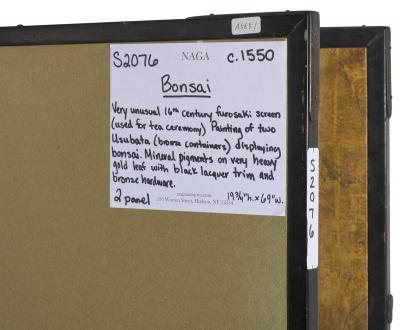 A5651
S2076 NAGA c.1550
Bonsai
Very unusual 16th century furosaki screen
(used for tea ceremony) Painting of two
Usubata (bronze containers) displaying
bonsai. Mineral pigments on very heavy
gold leaf with black lacquer trim and
bronze hardware.
nagaantiques.com
2 panel Warren Street, Hudson, NY 19 3/4"h. x 69"w.
S2076